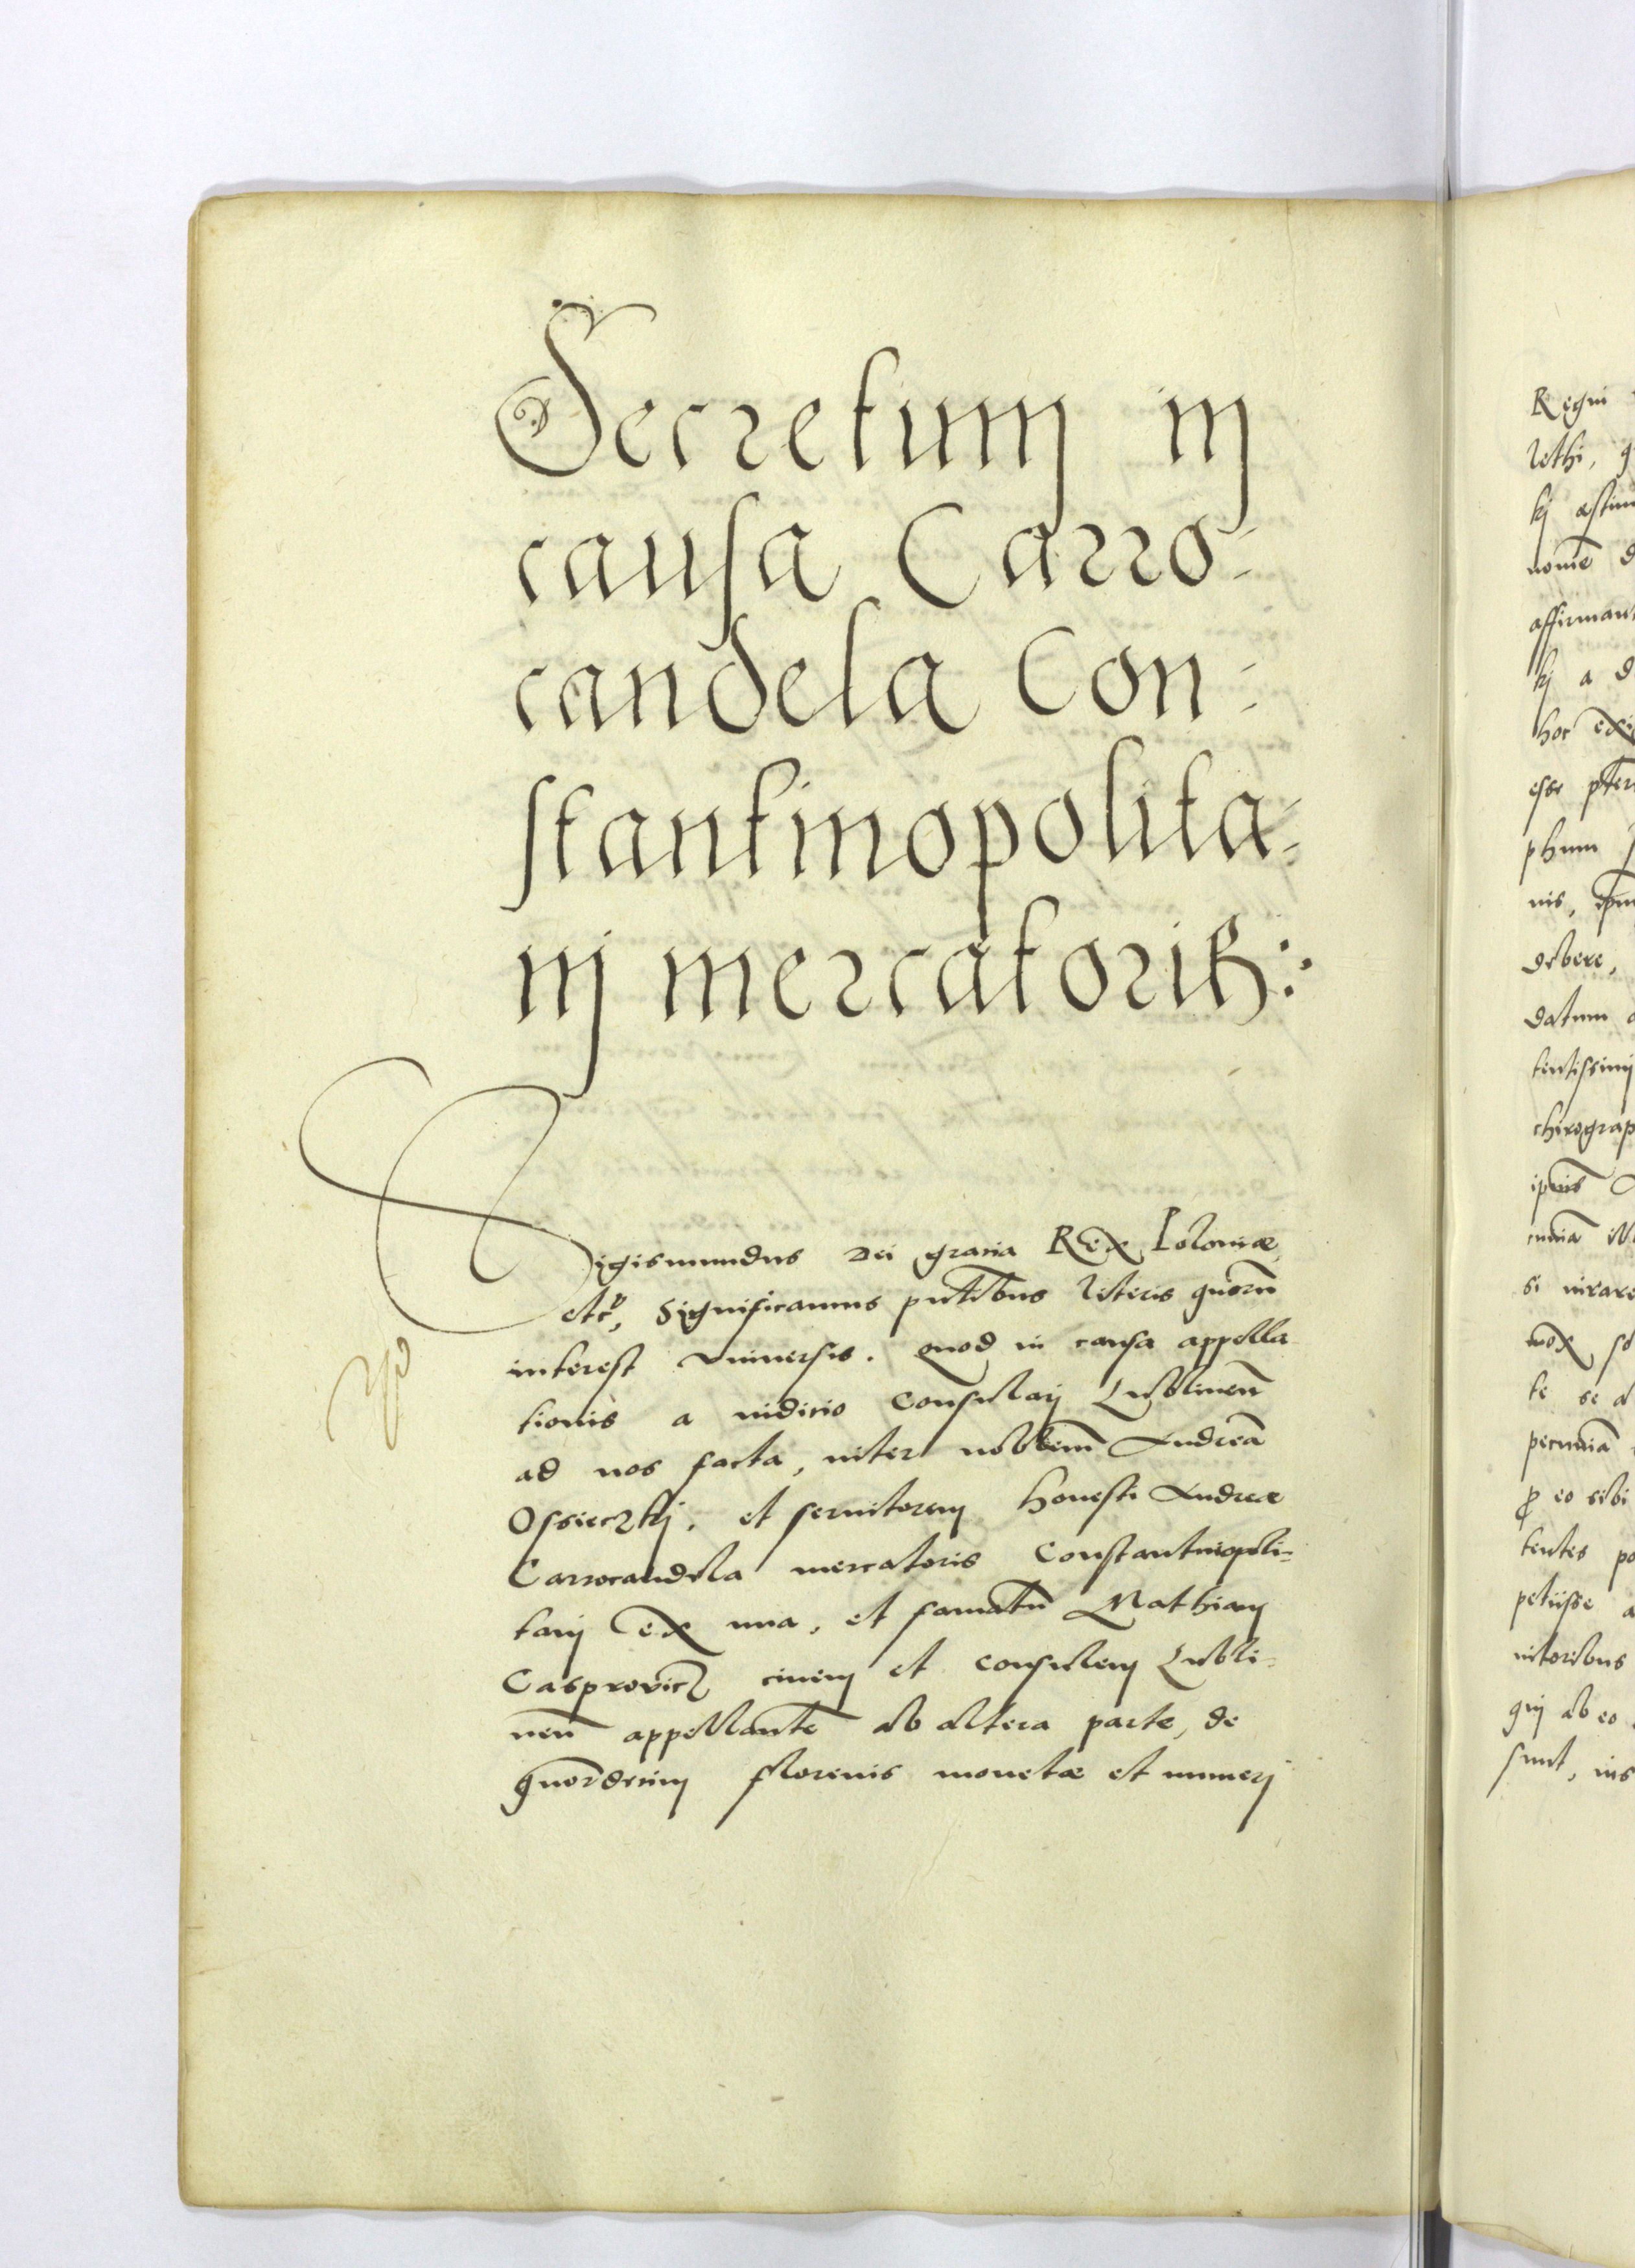 Decretum in
causa Carro-
candela Con-
stantinopolita-
nj mercatoris:
Sigismundus Dei gratia Rex Poloniæ
etc, Significamus pntibus literis quorū
interest vniuersis. quod in causa appella
tionis a iuditio Consularj Lublineñ
ad nos facta, inter nobilem Andreā
Ossieczkj. et seruitorem honesti Andreæ
Carrocandela mercatoris Constantinopoli-
tanj ex una, et famatū Mathiam
Casprowicz ciuem et consulem Lubli-
neñ appellantē ab altera parte, de
quordecim florenis monetæ et numerj
Regni
lethi,
kj
nomē
affirmant
kj a
hoc
esse
phum
nis,
debere,
datum
tentissimj
chirograp
si iurare
mox
te se
pecuniā
eo sibi
tentes
petiisse
uitoribus
quj ab eo
sunt, ius